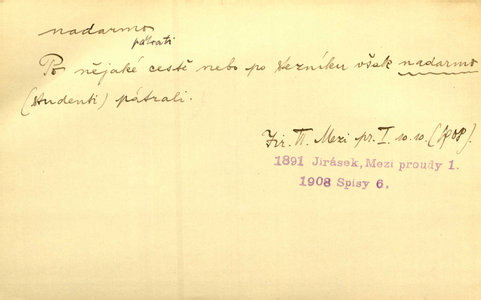 nadarmo
pátrati
Po nějaké cestě nebo po Hezníku však nadarmo
(studenti) pátrali.
Jir. Mezi pr. I.
1891 Jirásek, Mezi proudy 1.
1908 Spisy 6.